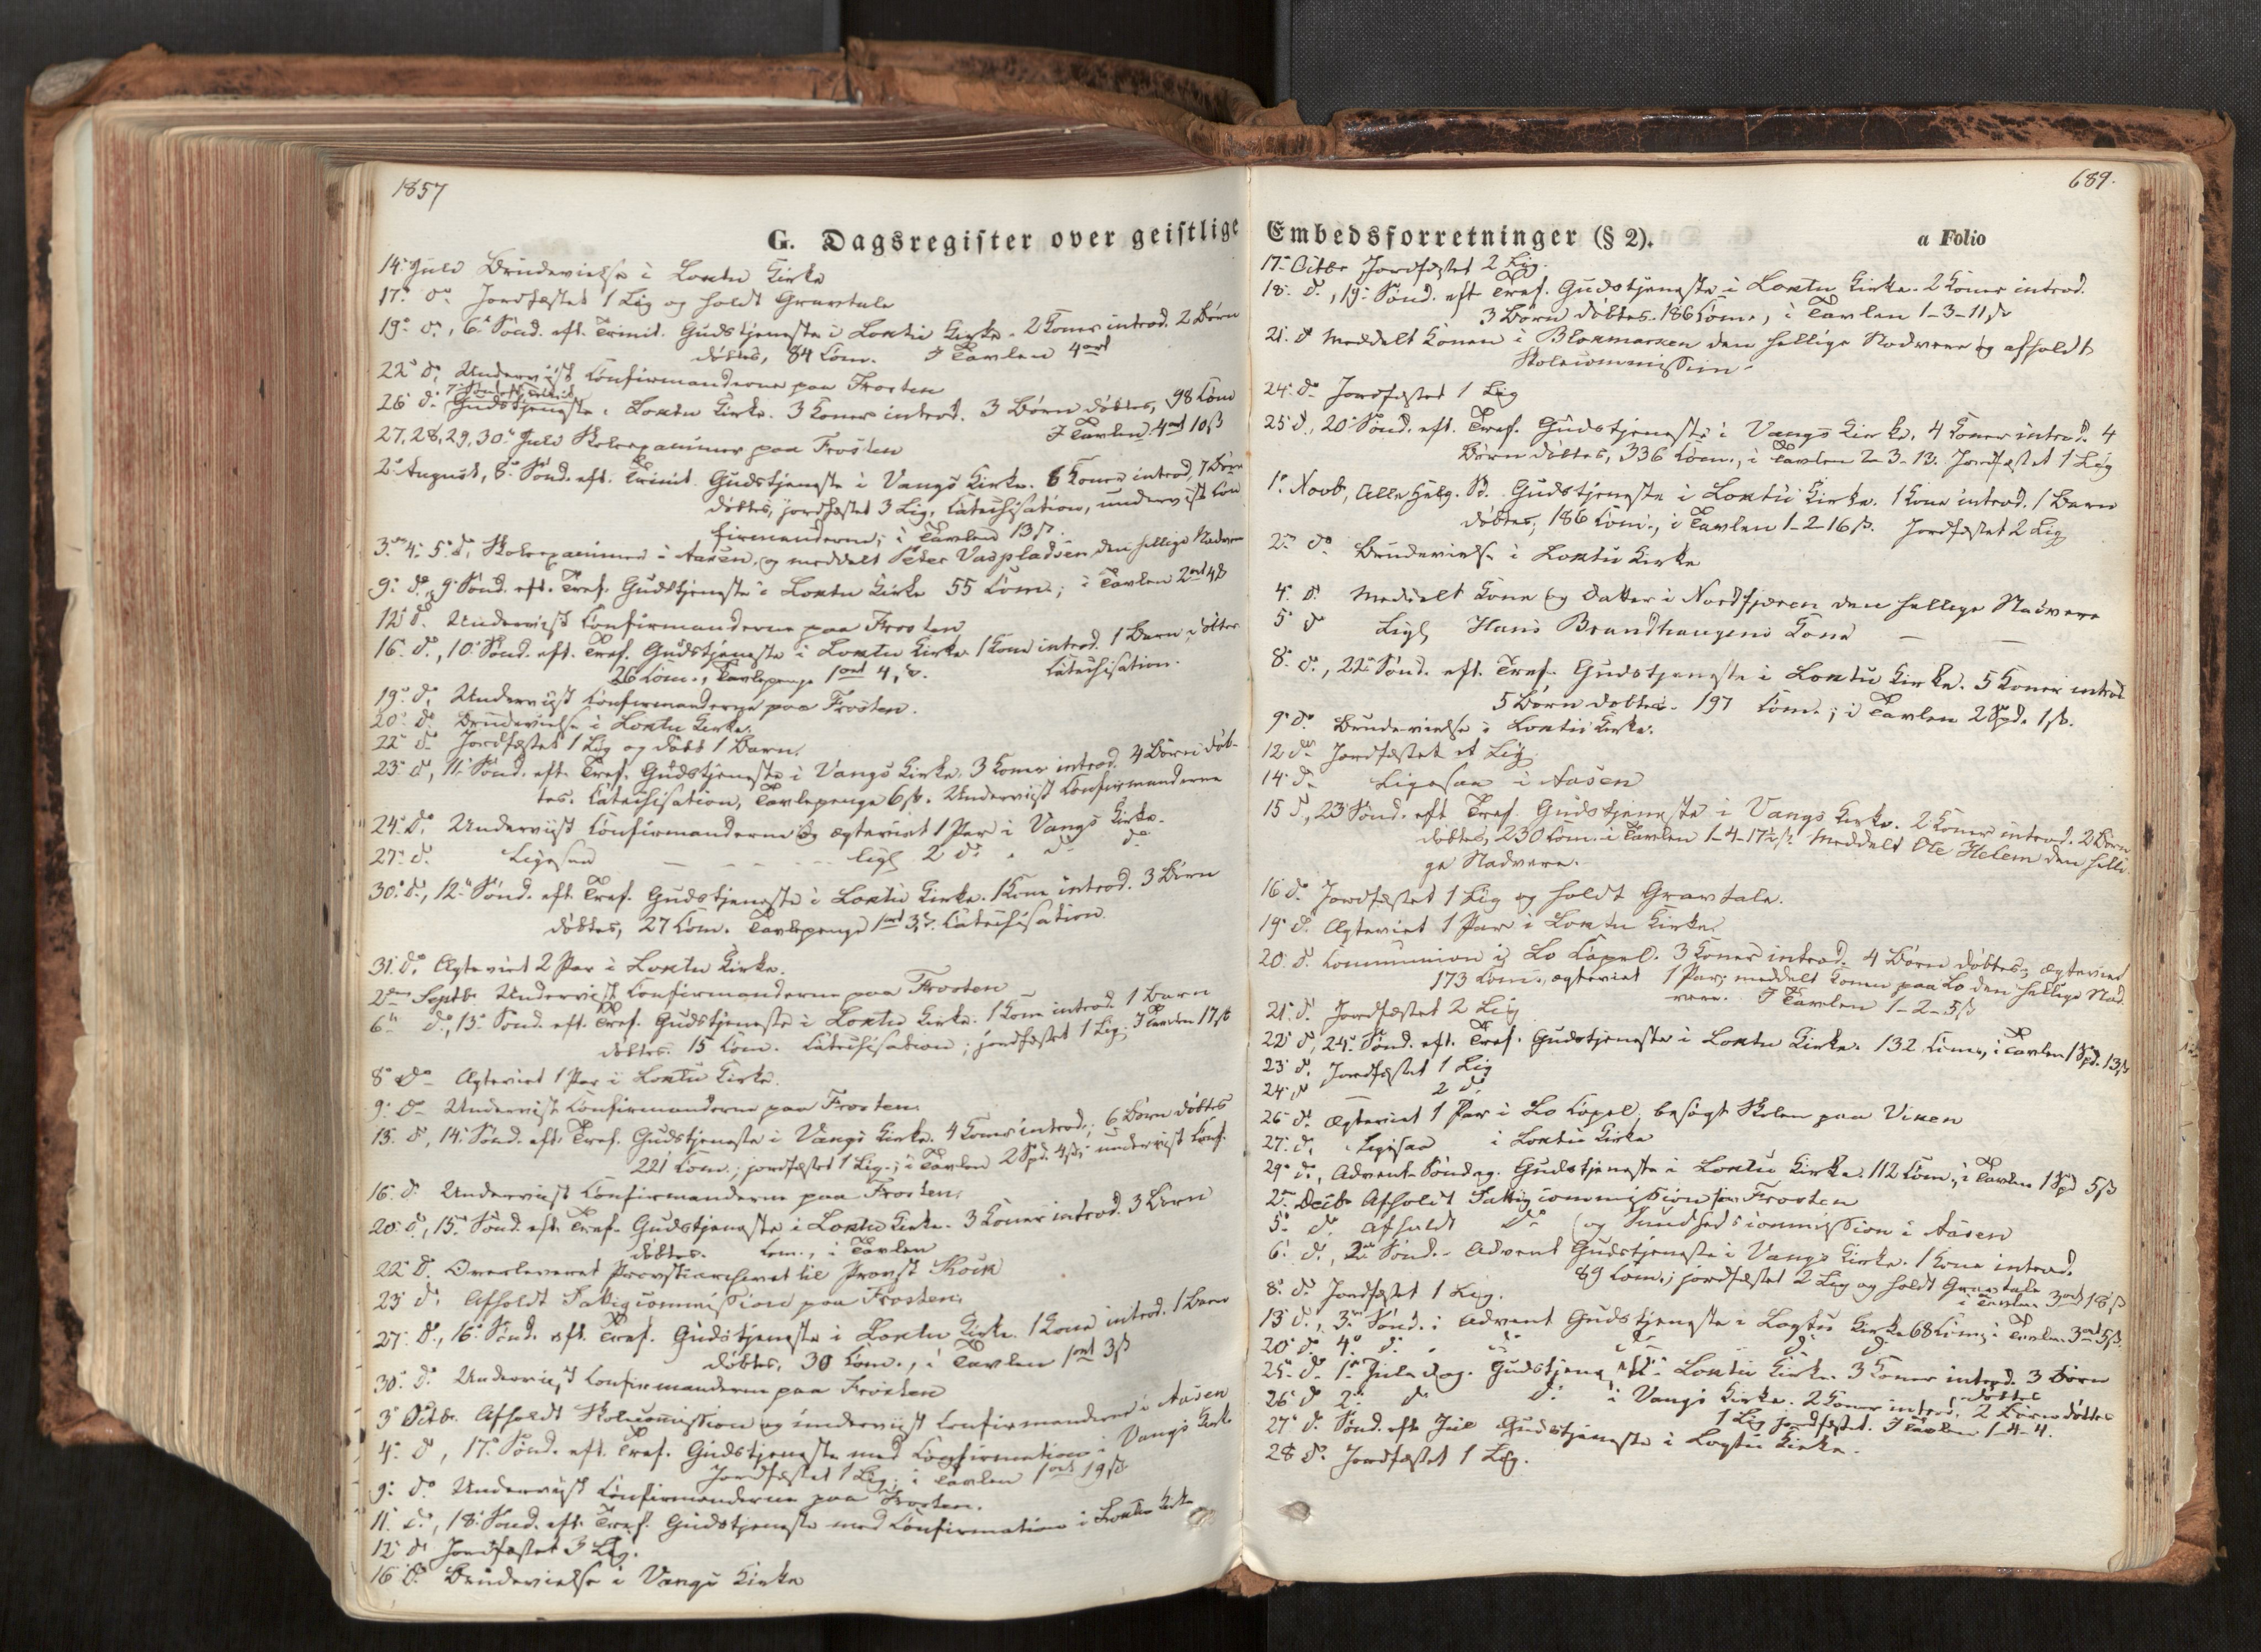 1857
G. Dagsregister over geistlige
14de Juli Brudevielse i Loxtu Kirke
17de do Jordfæstet 1 Lig og holdt Gravtale
19de do, 6te Sönd. eft. Trinit. Gudstjeneste i Loxtu Kirke. 2 Koner introd. 2 Börn
döbtes, 84 Com. I Tavlen 4 ort
22de do Underviist Confirmanderne paa Frosten
26 do Gudstjeneste i Loxtu Kirke. 3 Koner introd. 3 Börn döbtes, 98 Com
I Tavlen 4 ort 10 ß
27, 28, 29, 30te Juli Skoleexaminer paa Frosten
2den August, 8de Sönd. eft. Trinit. Gudstjeneste i Vangs Kirke. 6 Koner introd, 7 Börn
döbtes, jordfæstet 3 Lig, Catechisation, underviist Con
firmanderne; i Tavlen 13 ß.
3. 4. 5te do, Skoleexaminer i Aasen, og meddelt Peter Vaspladsen den hellige Nadvere
9de do, 9de Sönd. eft. Tref. Gudstjeneste i Loxtu Kirke 55 Com; i Tavlen 2 ort 4 ß
12 do. Underviist Confirmanderne paa Frosten
16. do., 10. Sönd. eft. Tref. Gudstjeneste i Loxtu Kirke 1 Kone introd. 1 Barn döbtes
26 Com., Tavlepenge 1 ort 4 ß. Catechisation.
19de do Underviist Confirmanderne paa Frosten.
20. do Brudevielse i Loxtu Kirke.
22 do Jordfæstet 1 Lig og döbt 1 Barn.
23 do, 11. Sönd. eft. Tref. Gudstjeneste i Vangs Kirke. 3 Koner introd. 4 Börn döb-
tes. Catechisation, Tavlepenge 6 ß. Underviist Confirmanderne
24. do. Underviist Confirmanderne og ægteviet 1 Par i Vangs Kirke.
27. do. Ligesaa — — — ligl 2 do. do do
30. do, 12te Sönd. eft. Tref. Gudstjeneste i Loxtu Kirke. 1 Kone introd. 3 Börn
döbtes, 27 Com. Tavlepenge 1 ort 3 ß. Catechisation.
31. do. Ægteviet 2 Par i Loxtu Kirke.
2den Septb. Underviist Confirmanderne paa Frosten
6te do, 13. Sönd. eft. Tref. Gudstjeneste i Loxtu Kirke. 1 Kone introd. 1 Barn
döbtes. 15 Com. Catechisation; jordfæstet 1 Lig. I Tavlen 17 ß
8de do Ægteviet 1 Par i Loxtu Kirke.
9. do Underviist Confirmanderne paa Frosten
13. do, 14. Sönd. eft. Tref. Gudstjeneste i Vangs Kirke. 4 Koner introd.; 6 Börn döbtes
221 Com.; jordfæstet 1 Lig.; i Tavlen 2 Spd. 4 ß; underviist Conf.
16. do Underviist Confirmanderne paa Frosten.
20. do, 15. Sönd. eft. Tref. Gudstjeneste i Loxtu Kirke. 3 Koner introd. 3 Börn
döbtes. Com., i Tavlen
22 do. Overleveret Provstiarchivet til Provst Kock
23 do. Afholdt Fattigcommission paa Frosten.
27. do., 16. Sönd. eft. Tref. Gudstjeneste i Loxtu Kirke. 1 Kone introd. 1 Barn
döbtes, 30 Com., i Tavlen 1 ort 3 ß
30. do. Underviist Confirmanderne paa Frosten
3 Octbr. Afholdt Skolecommission og underviist Confirmanderne i Aasen
4. do, 17. Sönd. eft. Tref. Gudstjeneste med Confirmation i Vangs Kirke
Jordfæstet 1 Lig; i Tavlen 1 ort 19 ß
9. do. Underviist Confirmanderne paa Frosten.
11. do., 18. Sönd. eft. Tref. Gudstjeneste med Confirmation i Loxtu Kirke
12 do Jordfæstet 3 Lig.
16 do. Brudevielse i Vangs Kirke
689.
Embedsforretninger (§ 2).
a Folio
17. Octbr Jordfæstet 2 Lig.
18. do., 19. Sönd. eft. Tref. Gudstjeneste i Loxtu Kirke. 2 Koner introd.
3 Börn döbtes. 186 Com., i Tavlen 1-3-11 ß
21. do Meddelt Konen i Blokmarken den hellige Nadvere og afholdt
Skolecommission.
24. do Jordfæstet 1 Lig
25 do., 20 Sönd. eft. Tref. Gudstjeneste i Vangs Kirke. 4 Koner introd. 4
Börn döbtes, 336 Com., i Tavlen 2-3-13. Jordfæstet 1 Lig
1. Novb., Alle Helg. D. Gudstjeneste i Loxtu Kirke. 1 Kone introd. 1 Barn
döbtes, 186 Com., i Tavlen 1-2-16 ß. Jordfæstet 2 Lig
2. do Brudevielse i Loxtu Kirke
4. do Meddelt Kone og Datter i Nordfjæren den hellige Nadvere
5 do Ligl Hans Brandhaugens Kone — —
8. do., 22. Sönd. eft. Tref. Gudstjeneste i Loxtu Kirke. 5 Koner introd.
5 Börn döbtes. 197 Com.; i Tavlen 2 Spd. 1 ß.
9. do Brudevielse i Loxtu Kirke.
12 do Jordfæstet et Lig
14. do Ligesaa i Aasen
15 do, 23 Sönd. eft Tref. Gudstjeneste i Vangs Kirke. 2 Koner introd. 2 Börn
döbtes, 230 Com. i Tavlen 1-4-17½ ß. Meddelt Ole Helem den helli
ge Nadvere.
16 do Jordfæstet 1 Lig og holdt Gravtale.
19. do. Ægteviet 1 Par i Loxtu Kirke.
20. do. Communion i Lo Capel. 3 Koner introd. 4 Börn döbtes; ægteviet
173 Com., ægteviet 1 Par; meddelt Konen paa Lo den hellige Nad.
vere. I Tavlen 1-2-5 ß
21. do. Jordfæstet 2 Lig
22 do, 24. Sönd. eft. Tref. Gudstjeneste i Loxtu Kirke. 132 Com., i Tavlen 1 Spd. 13 ß
23 do. Jordfæstet 1 Lig
24. do — 2 do
26 do. Ægteviet 1 Par i Lo Capel, besögt Skolen paa Viken
27. do. Ligesaa i Loxtu Kirke
29. do., Advent-Söndag. Gudstjeneste i Loxtu Kirke. 112 Com., i Tavlen 1 Spd 5 ß
2. Decbr Afholdt Fattigcommission paa Frosten
5. do. Afholdt do og Sundhedscommission i Aasen
6. do., 2den Sönd. Advent Gudstjeneste i Vangs Kirke. 1 Kone introd.
89 Com.; jordfæstet 2 Lig og holdt Gravtale
i Tavlen 3 ort 18 ß
8. do. Jordfæstet 1 Lig.
13 do., 3. Sönd. i Advent Gudstjeneste i Loxtu Kirke 68 Com; i Tavlen 3 ort 5 ß.
20 do 4. do. do do do
25. do. 1. Juledag. Gudstjeneste i Loxtu Kirke. 3 Koner introd. 3 Börn
döbtes
26 do 2. do do. i Vangs Kirke. 2 Koner introd. 2 Börn döbtes
1 Lig jordfæstet. I Tavlen 1-4-4.
27. do. Sönd. eft. Jul Gudstjeneste i Loxtu Kirke.
28 do. Jordfæstet 1 Lig.